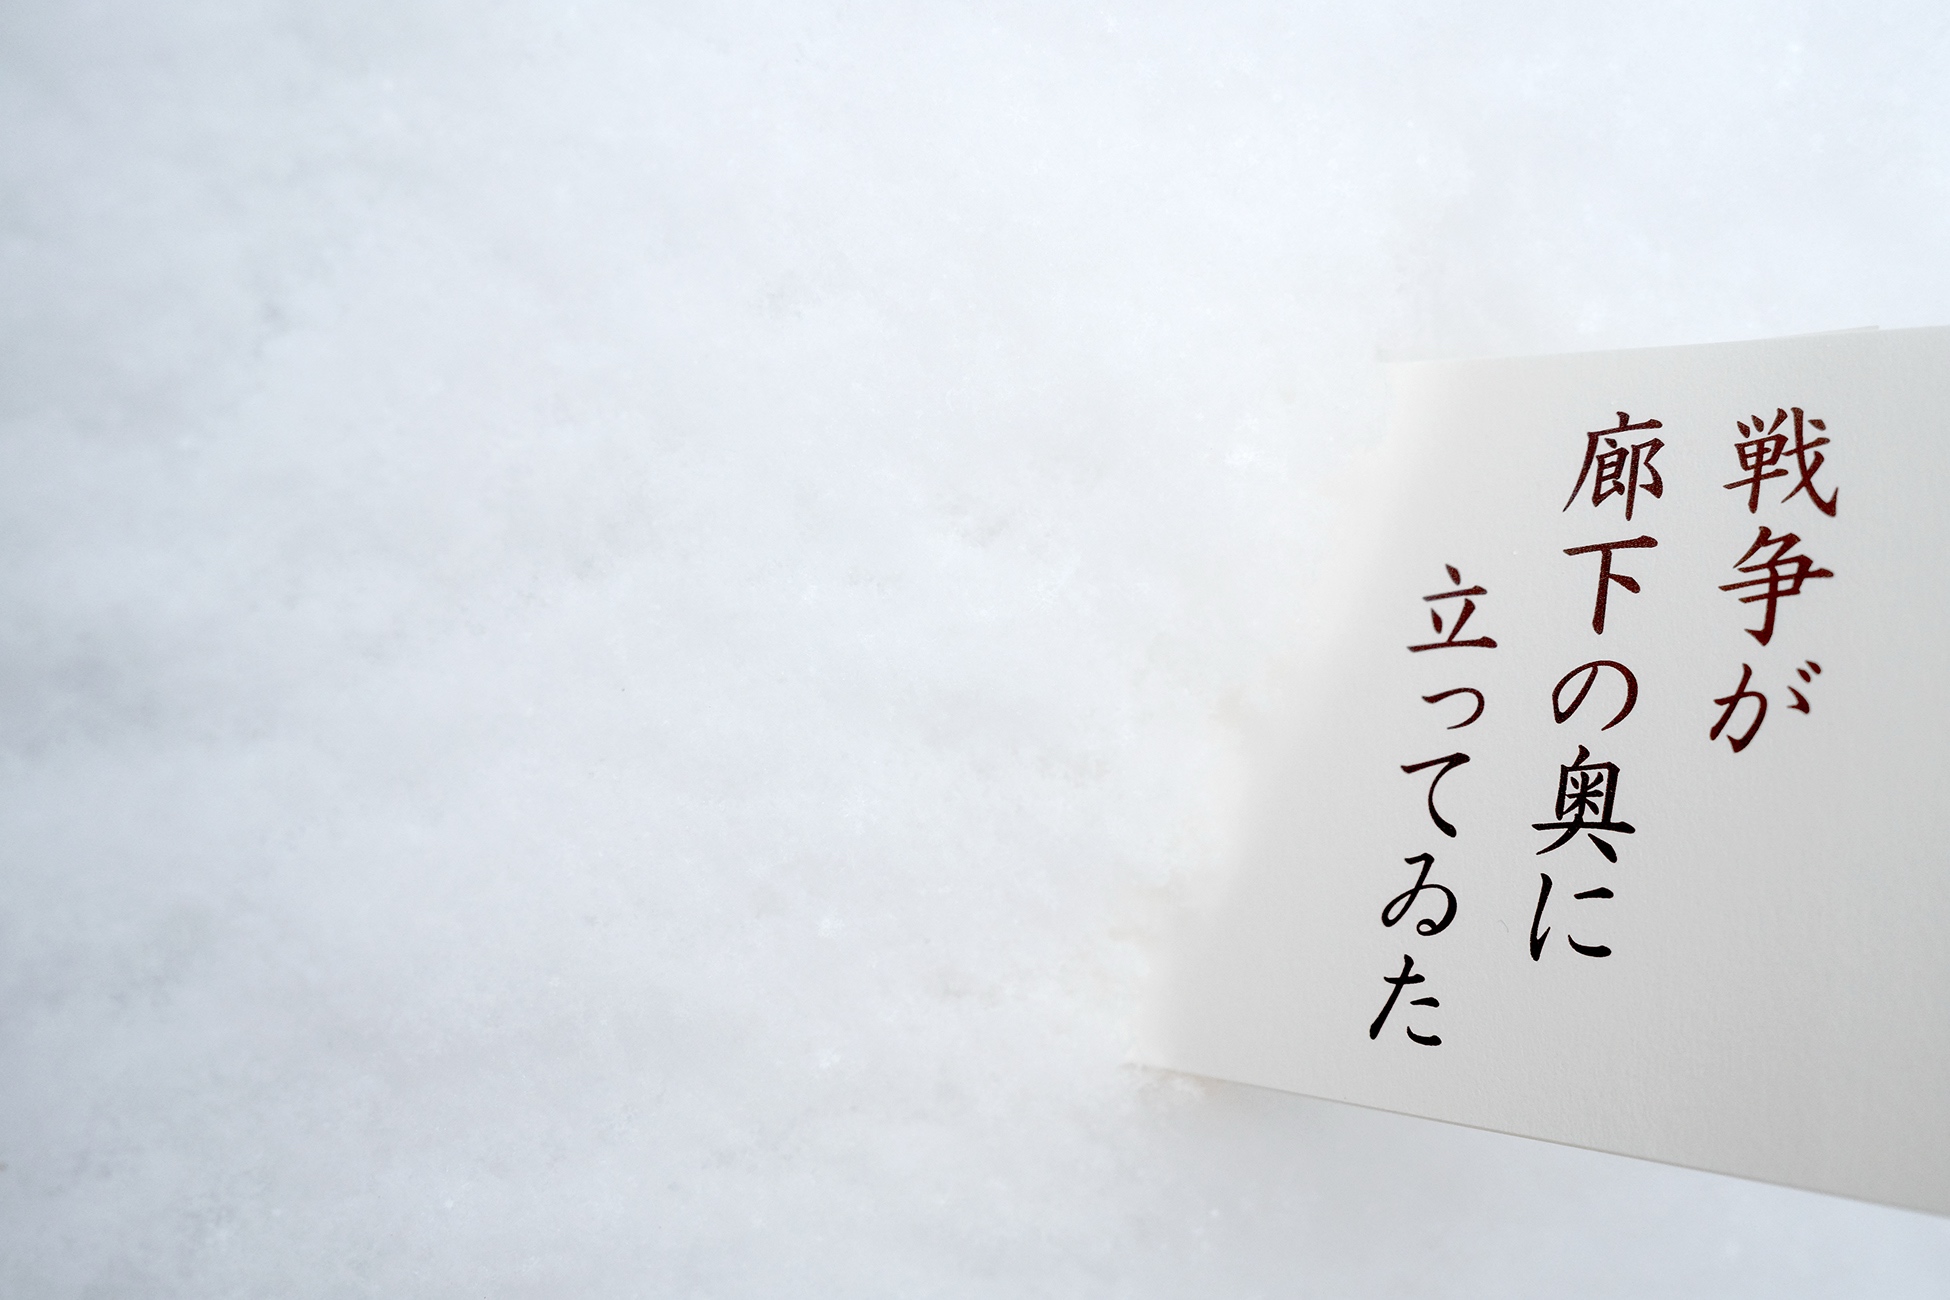 戦争が
廊下の奥に
立ってゐた